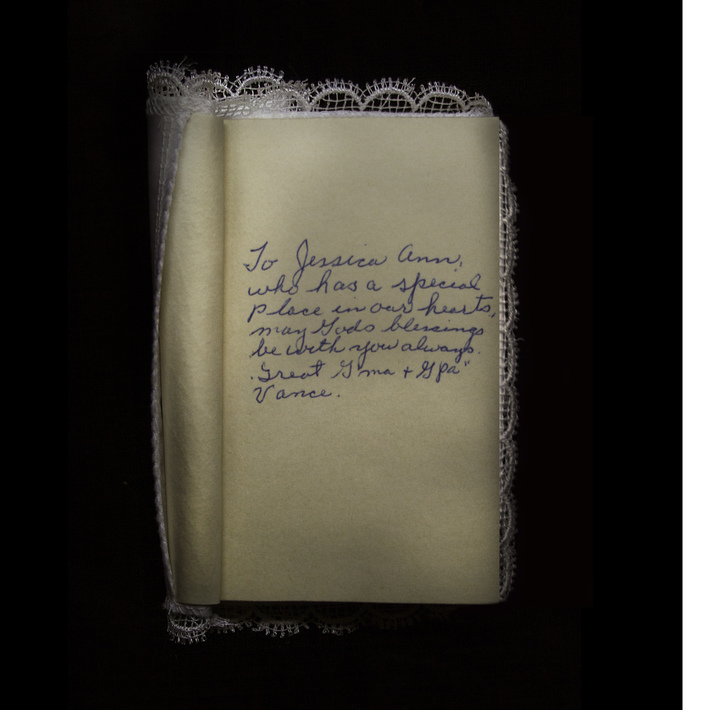 To Jessica Ann,
who has a special
place in our hearts,
may Gods blessings
be with you always.
Great G'ma + G'pa"
Vance.